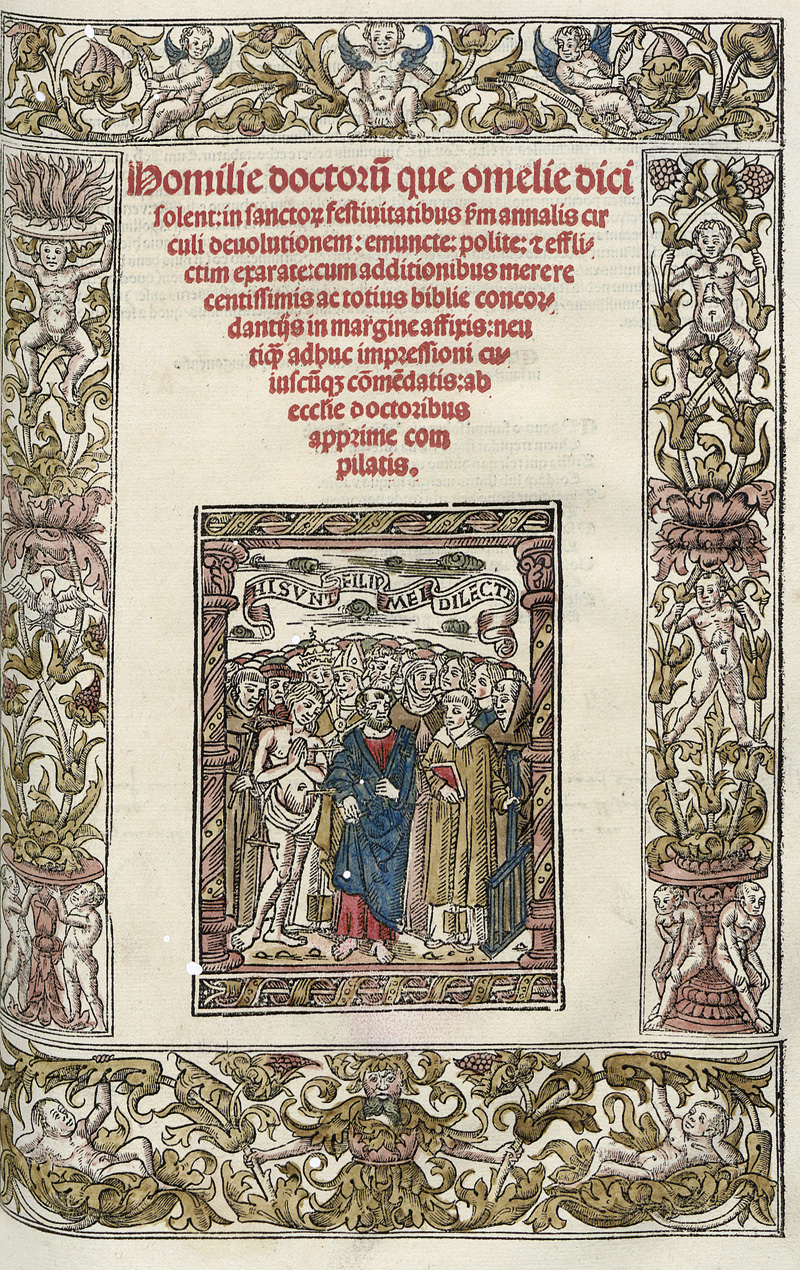 Homilie doctorū que omelie dici
solent: in sanctoꝝ festiuitatibus ẜm annalis cir
culi deuolutionem: emuncte: polite: ⁊ effli⸗
ctim exarate: cum additionibus mere re
centissimis ac totius biblie concor⸗
dantijs in margine affixis: neu
tiqꝫ adhuc impressioni cu⸗
iuscūqꝫ cōmēdatis: ab
ecclie doctoribus
apprime com
pilatis.
HI SVNT FILII MEI DILECTI